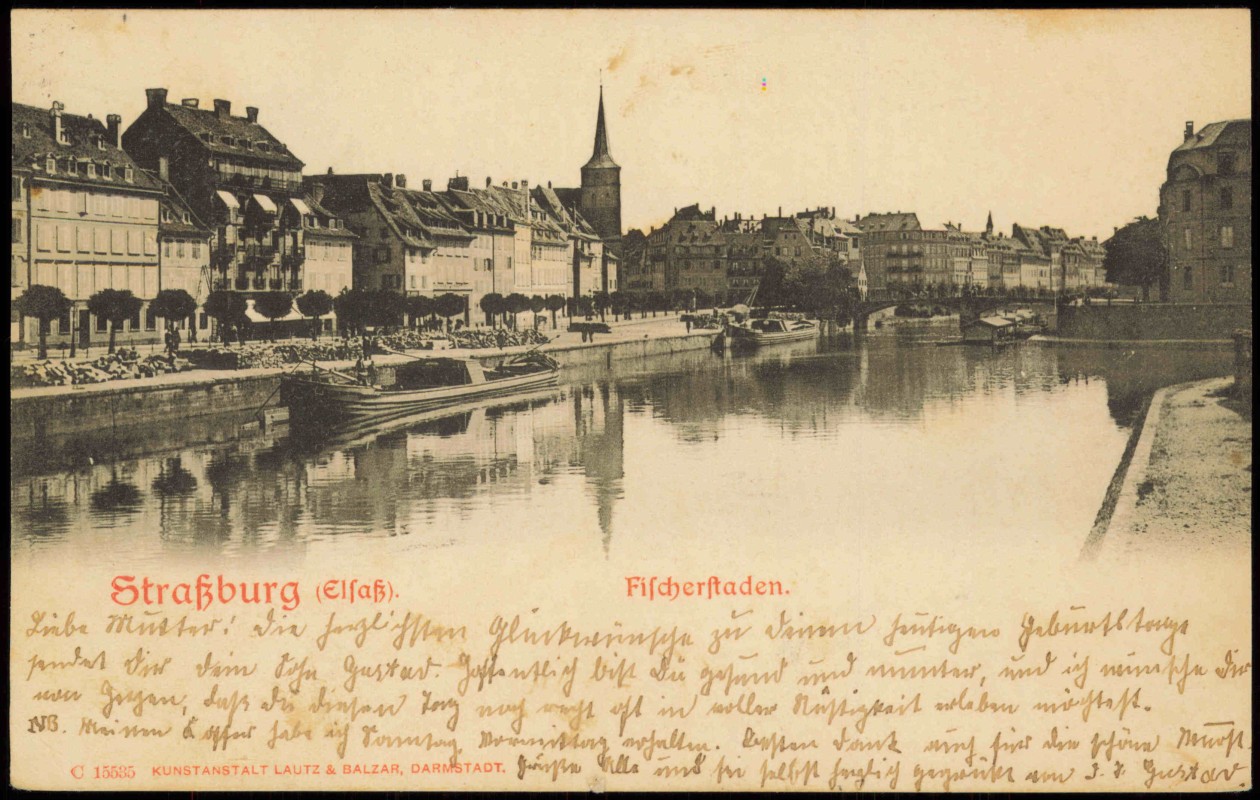 Straßburg (Elsaß).
Fischerstaden.
Liebe Mutter! Die herzlichsten Glückwünsche zu Deinem heutigen Geburtstage
sendet Dir Dein Sohn Gustav. Hoffentlich bist Du gesund und munter, und ich wünsche Dir
von Herzen, daß Du diesen Tag noch recht oft in voller Rüstigkeit erleben möchtest.
NB. Meinen Koffer habe ich Samstag Vormittag erhalten. Besten Dank auch für die schöne Wurst.
C 15535 KUNSTANSTALT LAUTZ & BALZAR, DARMSTADT. Grüße Alle und sei selbst herzlich gegrüßt von Gustav.